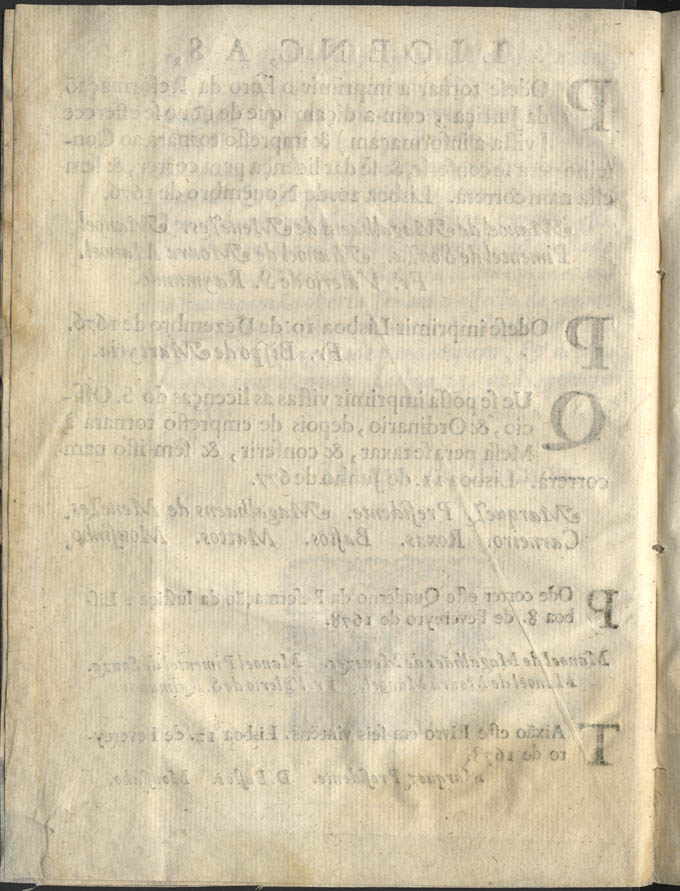 LICENÇAS,
POdese tornar a imprimir o Livro da Reformação
da Justiça, com a
(vista a informaçam) & impresso tornará ao Con-
selho pera se conferir, & se dar licença pera correr, & sem
ella nam correrá. Lisboa 20. de Novembro de 1676.
Manoel de Magalhaens de Meneses. Manoel
Pimentel de Sousa. Manoel de Moura Manoel.
Fr. Valerio de S. Raymundo.
POdese imprimir. Lisboa 10. de Dezembro de 1676.
Fr. Bispo de Martyria.
QUe se possa imprimir vistas as licenças do S. Offi-
cio, & Ordinario, depois de impresso tornara á
Mesa pera se taxar, & conferir, & sem isso nam
correrá. Lisboa 12. de Junho de 677.
Marquez Presidente. Magalhaens de Meneses.
Carneiro. Roxas. Bastos. Mattos. Mousinho.
POde correr este Quaderno da Reformação da Justiça. Lis-
boa 8. de Fevereyro de 1678.
Manoel de Magalhães de Menezes. Manoel Pimentel de Souza.
Manoel de Moura Manoel. Fr. Valerio de S. Raimundo.
TAixão este Livro em seis vinténs. Lisboa 12. de Feverey-
ro de 1678.
Marquez Presidente. D. Bastos. Mousinho.